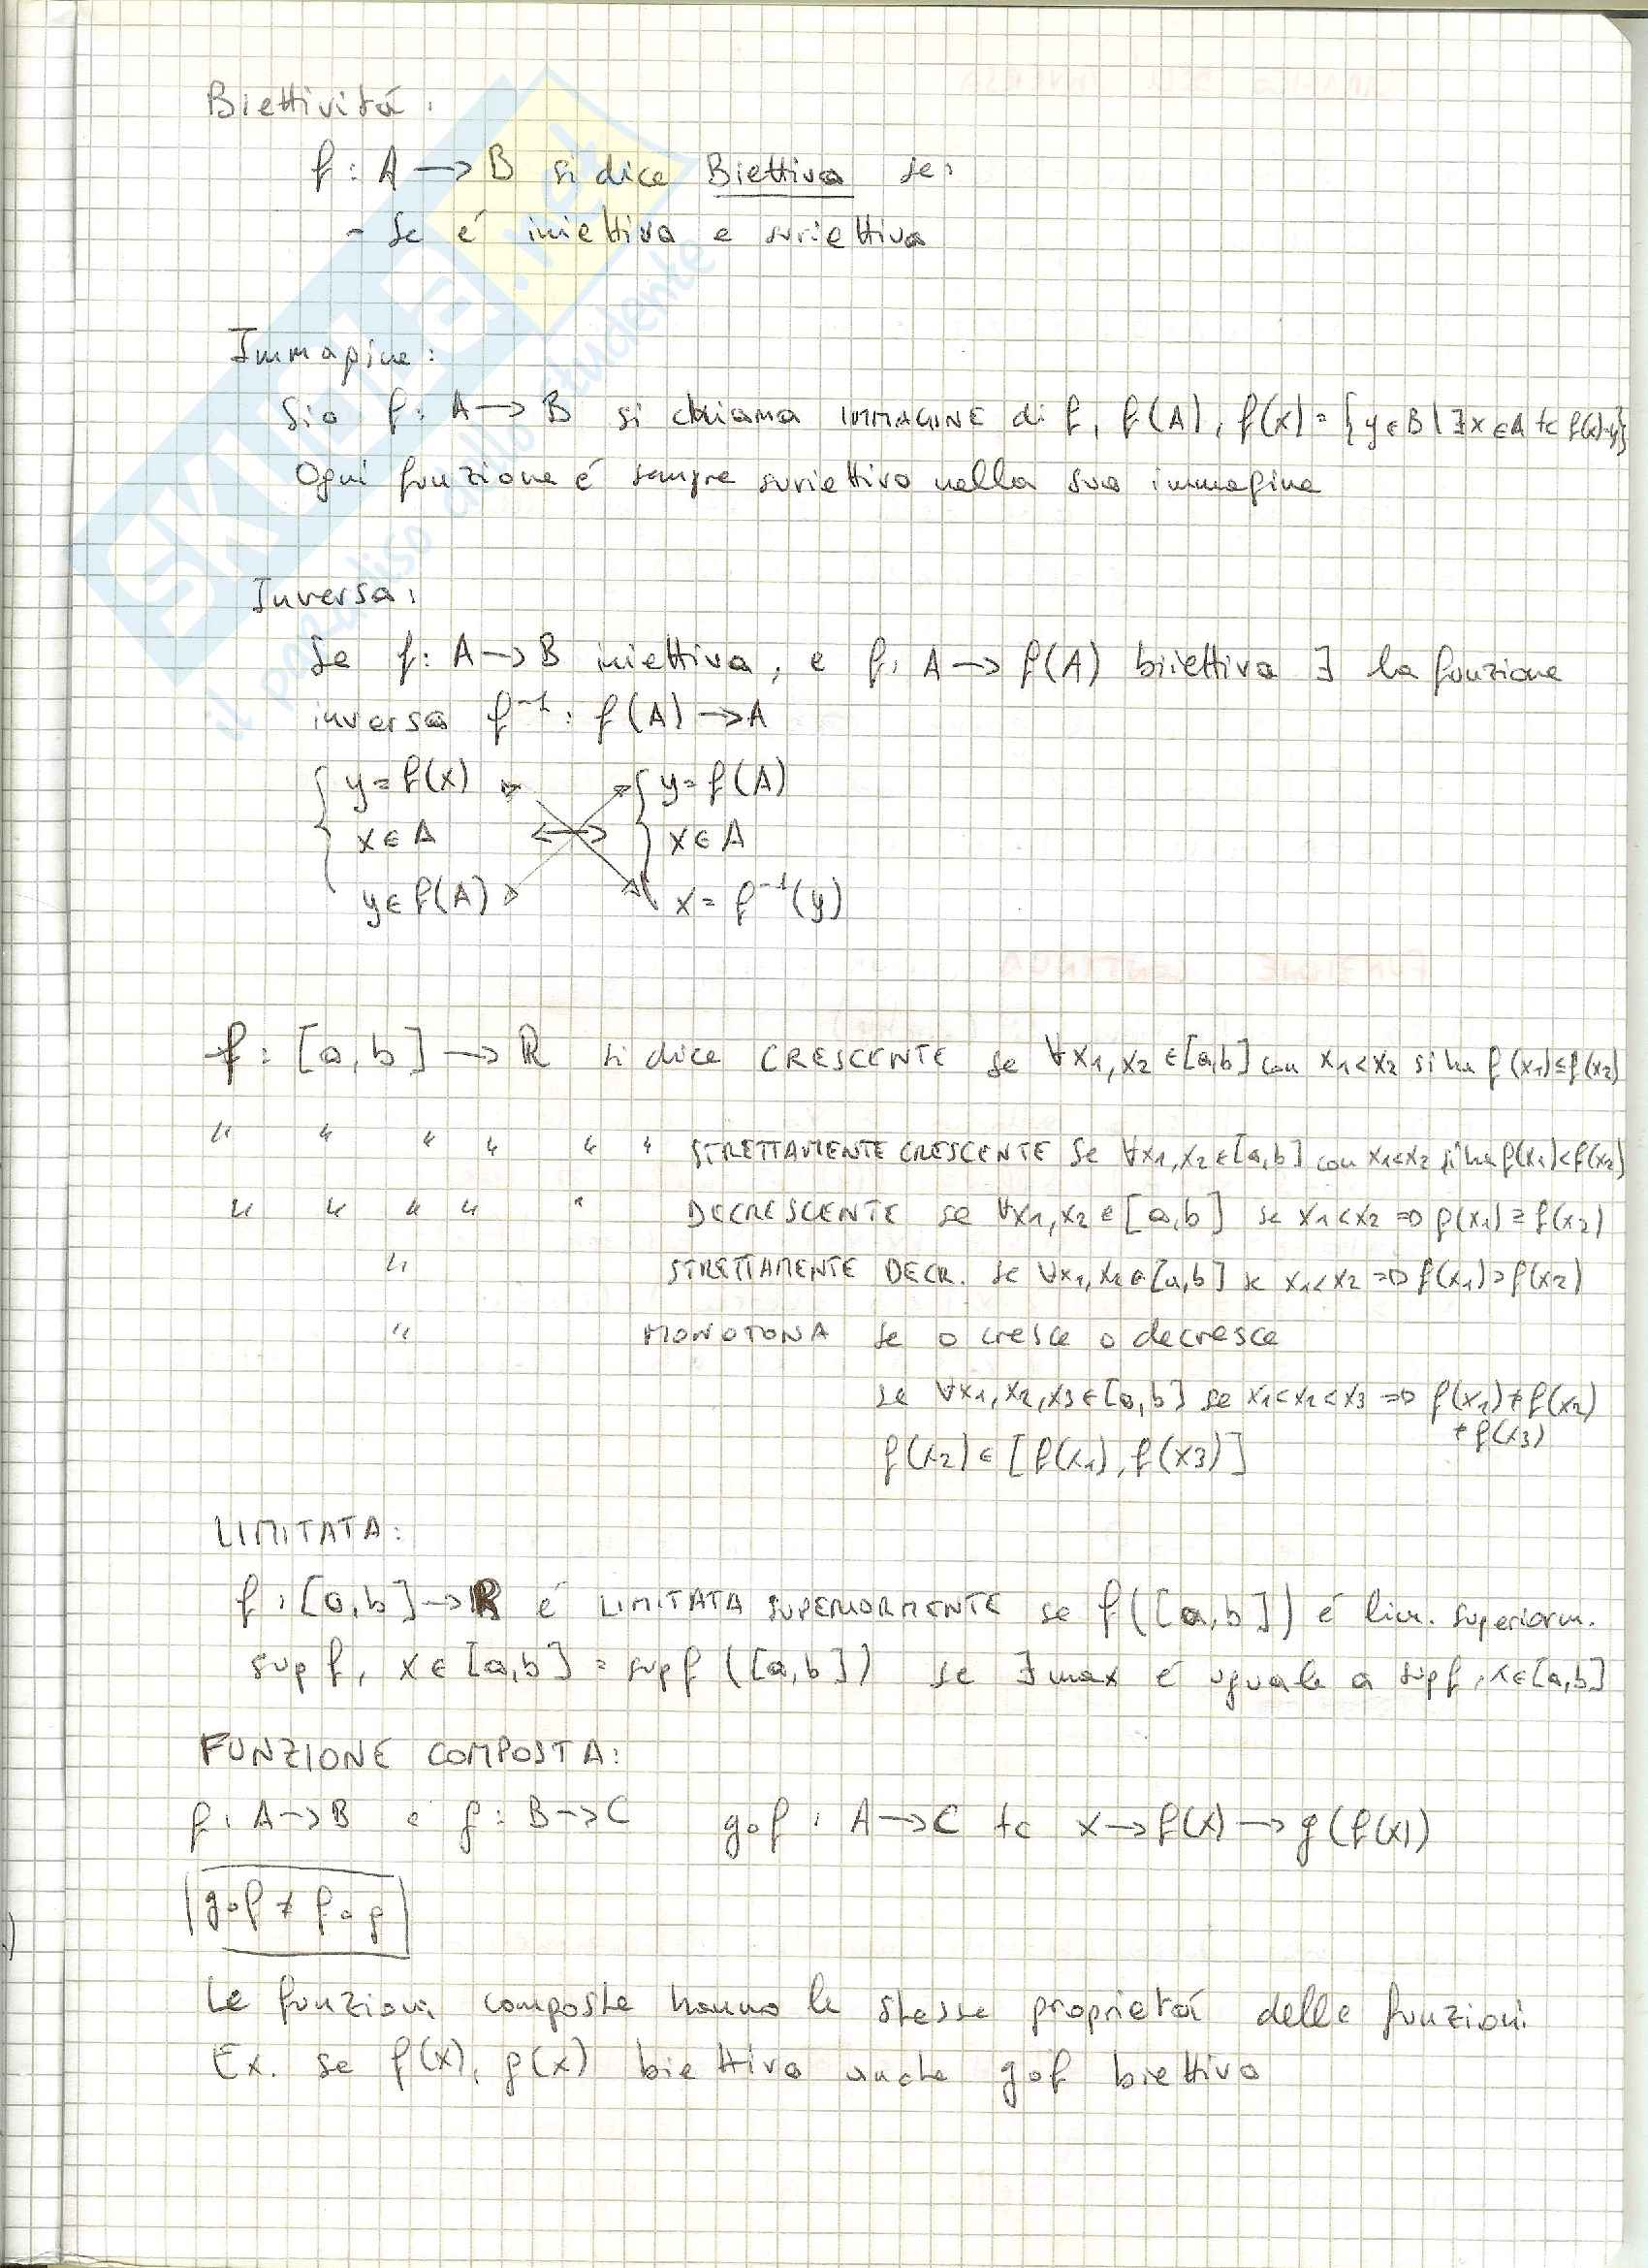 Biettività:
f: A → B si dice Biettiva se:
- Se é iniettiva e suriettiva
Immagine:
Sia f: A → B si chiama IMMAGINE di f, f(A), f(x) = {y ∈ B | ∃ x ∈ A tc f(x)=y}
Ogni funzione é sempre suriettiva nella sua immagine
Inversa:
Se f: A → B iniettiva, e f: A → f(A) biiettiva ∃ la funzione
inversa f⁻¹: f(A) → A
{ y = f(x) { y = f(A)
x ∈ A ↔ x ∈ A
y ∈ f(A) x = f⁻¹(y)
f: [a,b] → R si dice CRESCENTE se ∀x₁,x₂ ∈ [a,b] con x₁<x₂ si ha f(x₁)≤f(x₂)
" " " " " " STRETTAMENTE CRESCENTE se ∀x₁,x₂ ∈ [a,b] con x₁<x₂ si ha f(x₁)<f(x₂)
" " " " " DECRESCENTE se ∀x₁,x₂ ∈ [a,b] se x₁<x₂ => f(x₁) ≥ f(x₂)
" STRETTAMENTE DECR. se ∀x₁,x₂ ∈ [a,b] se x₁<x₂ => f(x₁)>f(x₂)
" MONOTONA se o cresce o decresce
se ∀x₁,x₂,x₃ ∈ [a,b] se x₁<x₂<x₃ => f(x₁) ≠ f(x₂)
≠ f(x₃)
f(x₂) ∈ [f(x₁), f(x₃)]
LIMITATA:
f: [a,b] → R é LIMITATA SUPERIORMENTE se f([a,b]) é lim. superiorm.
sup f, x ∈ [a,b] = sup f ([a,b]) se ∃ max é uguale a sup f, x ∈ [a,b]
FUNZIONE COMPOSTA:
f: A → B e g: B → C g∘f : A → C tc x → f(x) → g(f(x))
g∘f ≠ f∘g
Le funzioni composte hanno le stesse proprietá delle funzioni
Ex. se f(x), g(x) biettiva anche g∘f biettiva
SKUOLA.net
il paradiso dello studente